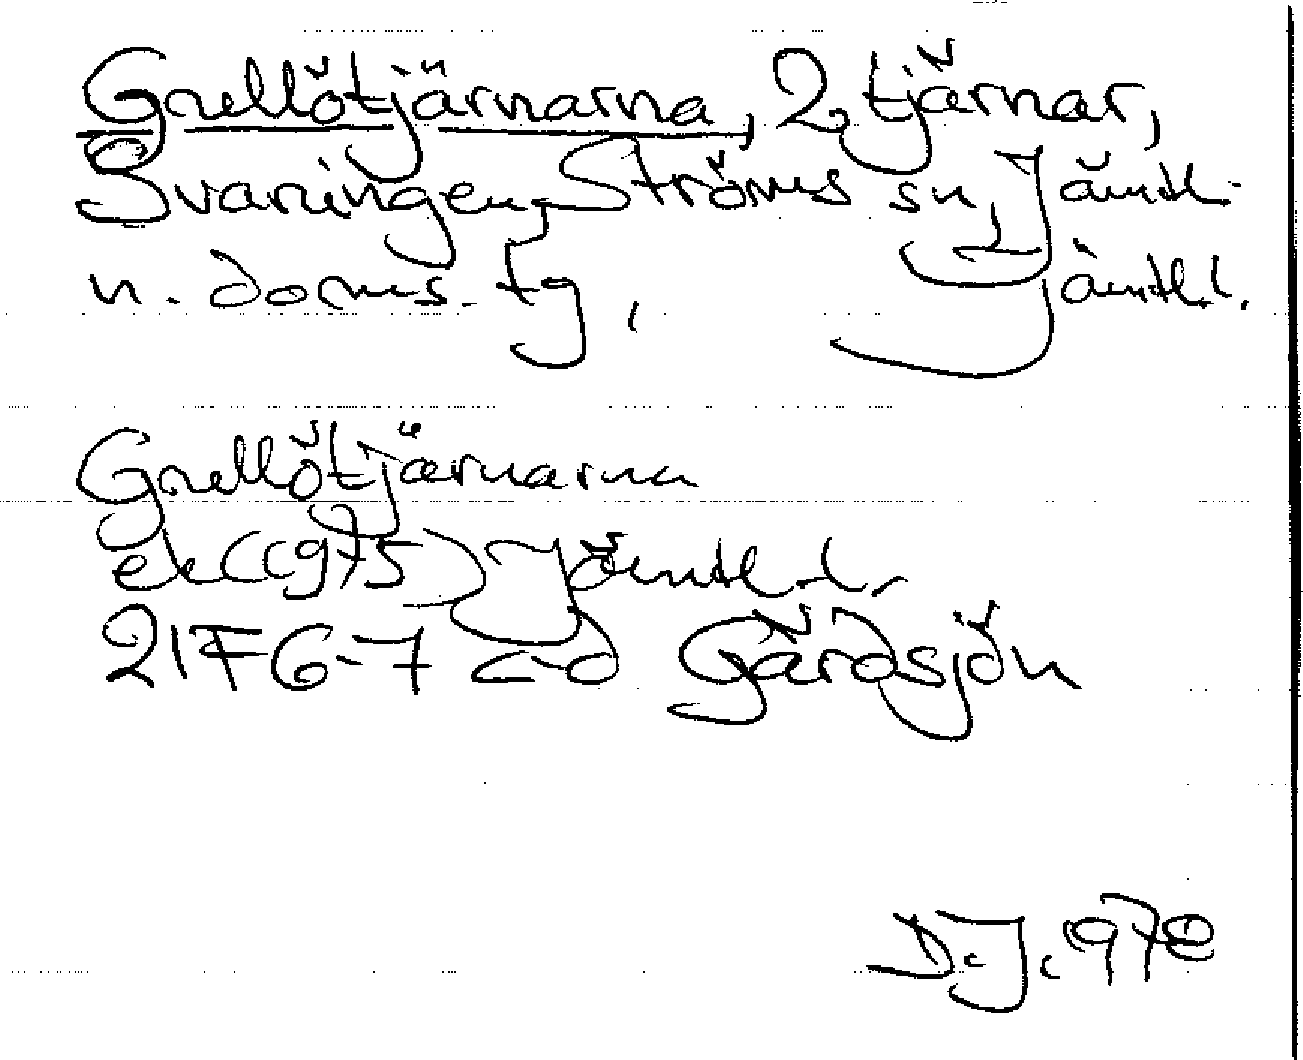 Grellötjärnarna, 2 tjärnar,
Svaningen, Ströms sn, Jämtl.
n. doms. tg, Jämtl.l.
Grellötjärnarna
ek (1975) Jämtl.l.
21F 6-7 c-d Gårdsjön
D.J. 1978